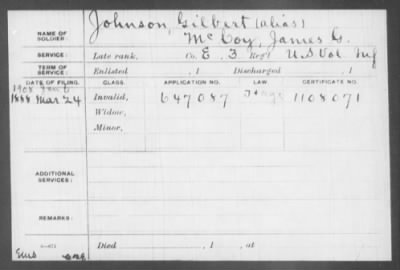 Johnson, Gilbert (alias)
NAME OF SOLDIER: McCoy, James G.
SERVICE: Late rank, Co. E, 3 Reg't U S Vol. Inf
TERM OF SERVICE: Enlisted , 1 Discharged , 1
DATE OF FILING. CLASS. APPLICATION NO. LAW. CERTIFICATE NO.
1908
1888 Mar 24 Invalid, 647087 1108071
Widow,
Minor,
ADDITIONAL SERVICES:
REMARKS:
Died , 1 , at